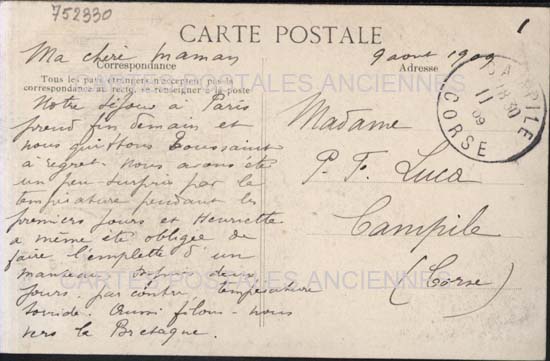 752330
1
CARTE POSTALE
Ma chère maman
9 aout 1909
Correspondance
Adresse
Tous les pays étrangers n'acceptent pas la
correspondance au recto, se renseigner à la poste
CARTES POSTALES ANCIENNES
Notre séjour à Paris
prend fin demain et
nous quittons Toussaint
à regret. Nous avons été
un peu surpris par la
température pendant les
premiers jours et Henriette
a même été obligée de
faire l'emplette d'un
manteau
deux
jours. par contre température
torride. Aussi filons-nous
vers la Bretagne.
Madame
P. F. Luca
Campile
(Corse)
CAMPILE
18 30
11
09
CORSE
CARTES POSTALES ANCIENNES